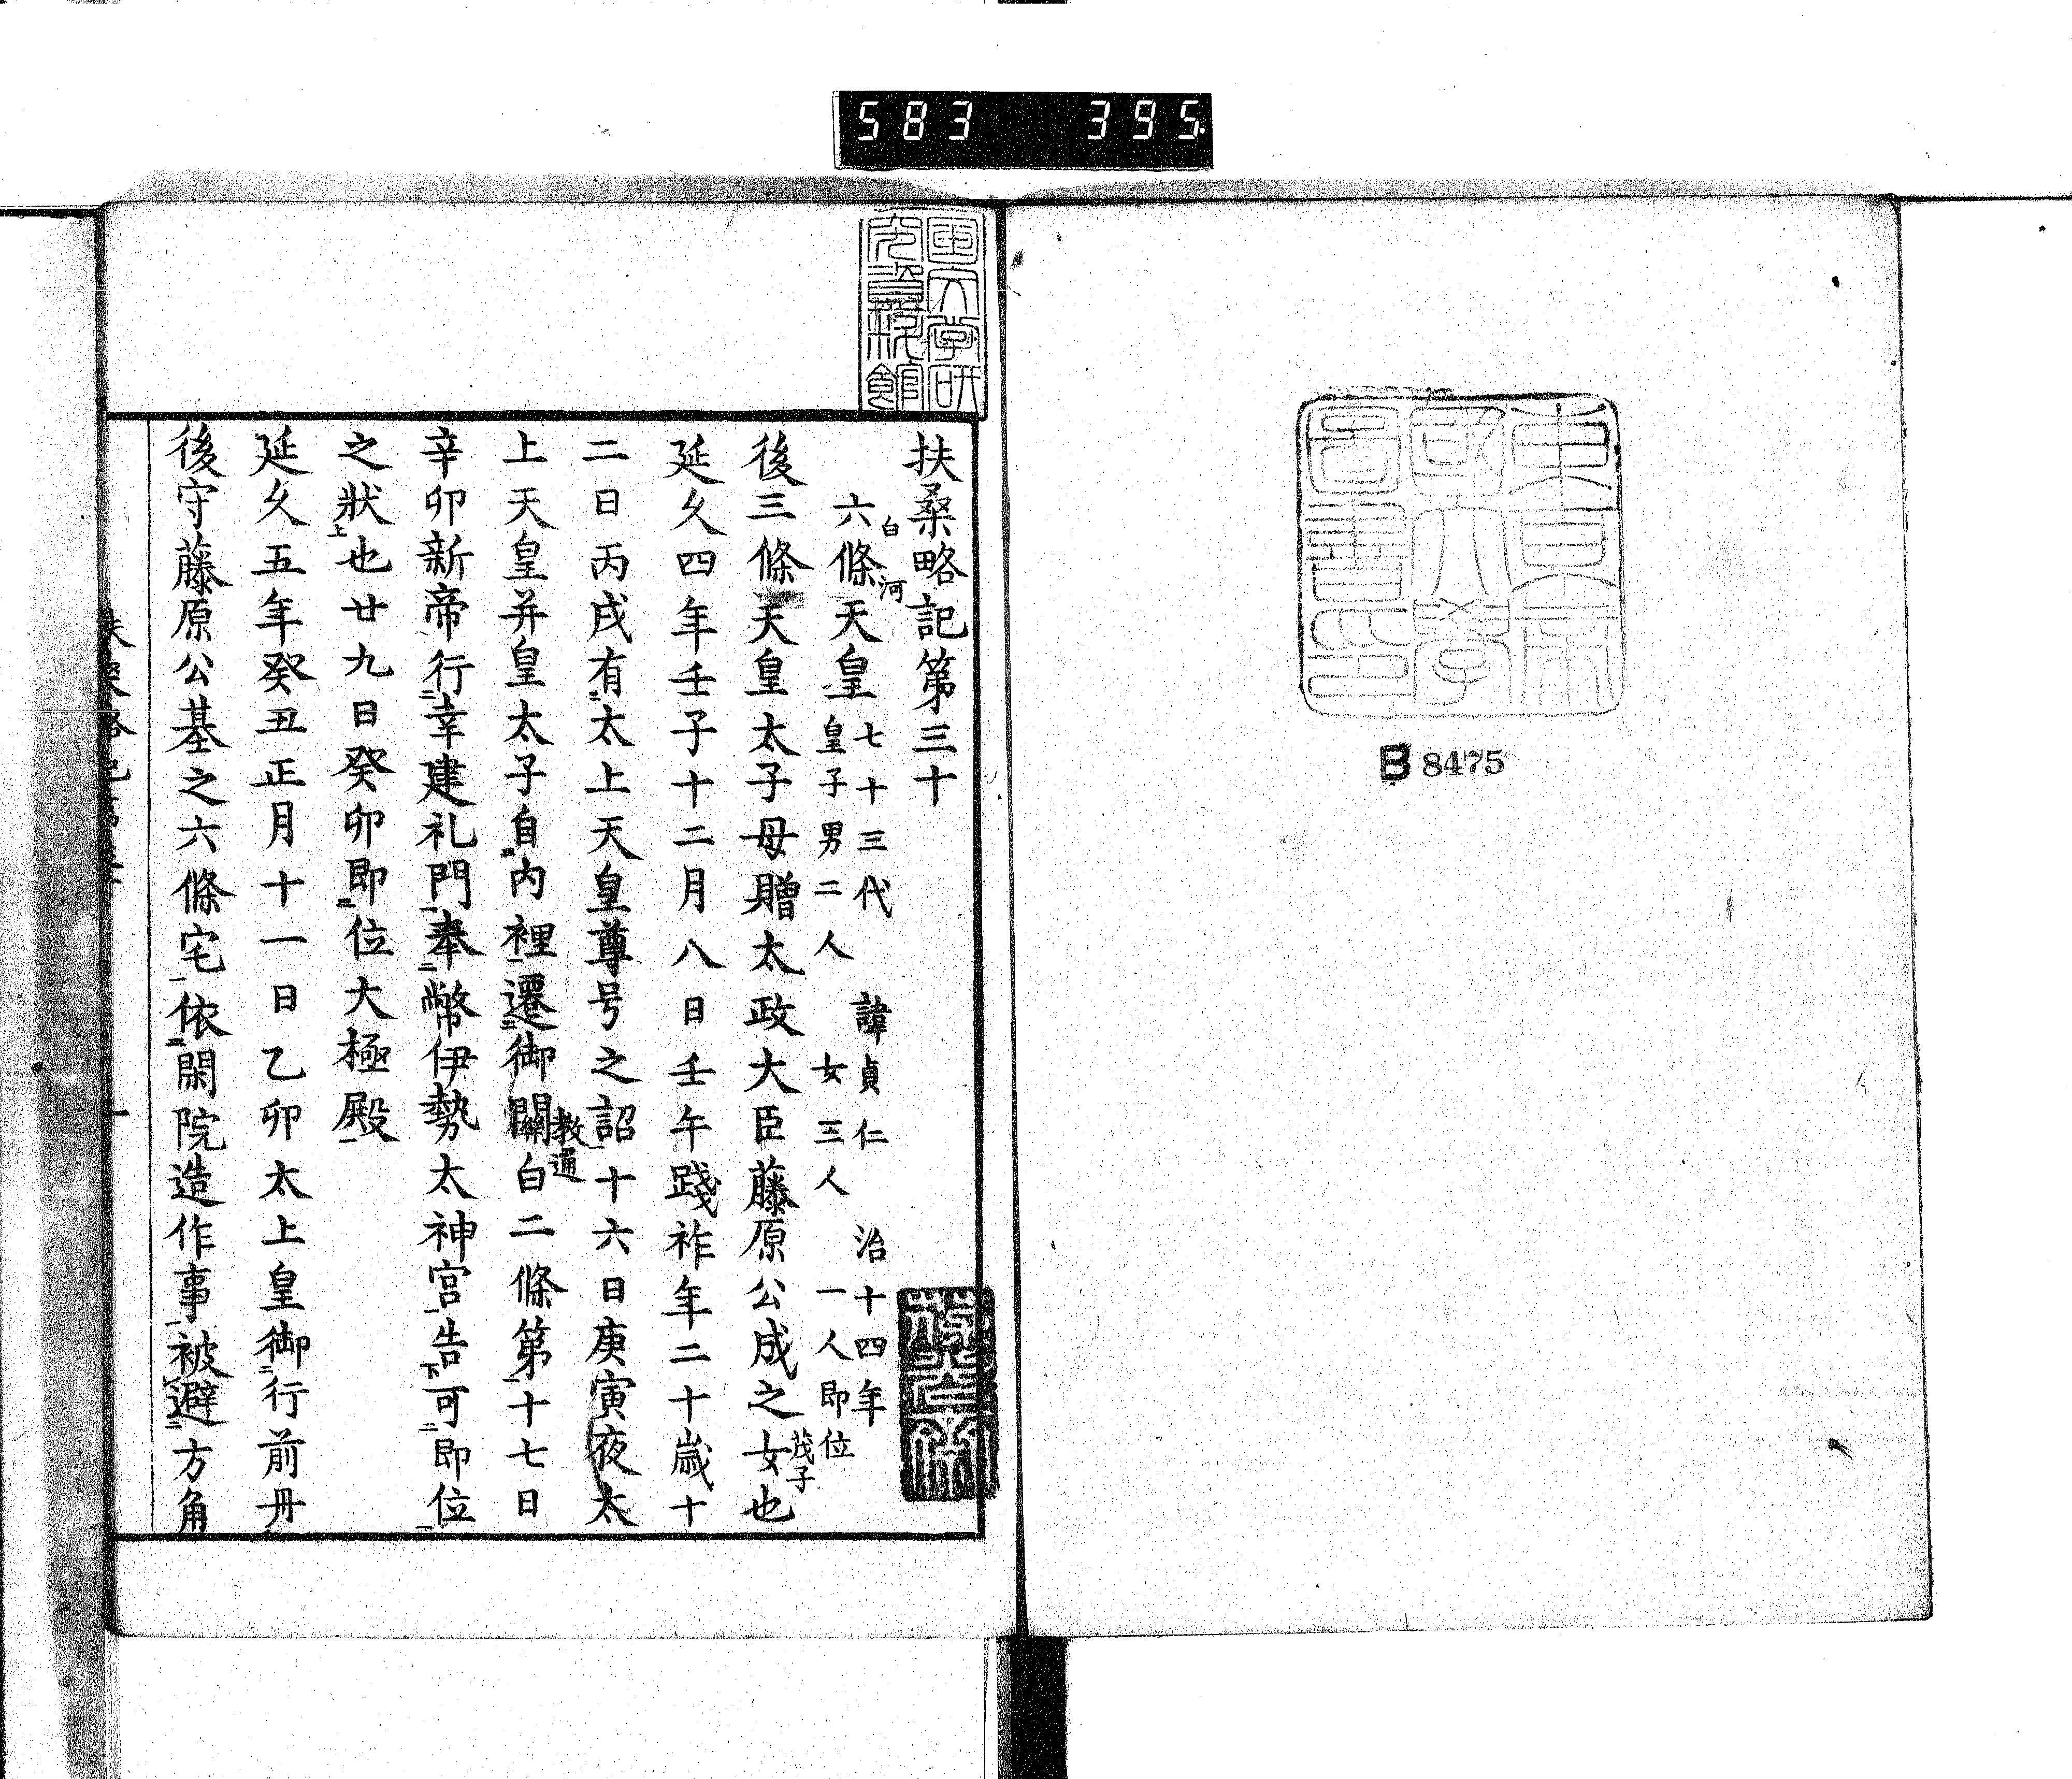 583 395.
東京帝國大學圖書印
B 8475
国文学研究資料館
扶桑略記第三十
六條天皇 七十三代 諱貞仁 治十四年
白河
皇子男二人 女三人 一人即位
後三條天皇太子母贈太政大臣藤原公成之女也
茂子
延久四年壬子十二月八日壬午踐祚年二十歲十
二日丙戌有二太上天皇尊号之詔一十六日庚寅夜太
上天皇并皇太子自内裡一遷二御關白二條第一十七日
教通
辛卯新帝行二幸建礼門一奉二幣伊勢太神宮一告下可二即位一
之狀上也廿九日癸卯即二位大極殿一
延久五年癸丑正月十一日乙卯太上皇御二行前丹
後守藤原公基之六條宅一依二閑院造作事一被レ避二方角